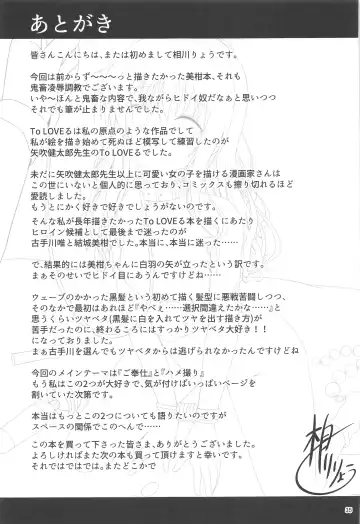 あとがき
皆さんこんにちは、または初めまして相川りょうです。
今回は前からず〜〜〜っと描きたかった美柑本、それも
鬼畜凌辱調教でございます。
いや〜ほんと鬼畜な内容で、我ながらヒドイ奴だなぁと思いつつ
それでも筆が止まりませんでした。
To LOVEるは私の原点のような作品でして
私が絵を描き始めて死ぬほど模写して練習したのが
矢吹健太郎先生のTo LOVEるでした。
未だに矢吹健太郎先生以上に可愛い女の子を描ける漫画家さんは
この世にいないと個人的に思っており、コミックスも擦り切れるほど
愛読しました。
もうとにかく好きで好きでしょうがないのです。
そんな私が長年描きたかったTo LOVEる本を描くにあたり
ヒロイン候補として最後まで迷ったのが
古手川唯と結城美柑でした。本当に、本当に迷った……
で、結果的には美柑ちゃんに白羽の矢が立ったという訳です。
まぁそのせいでヒドイ目にあうんですけどね…
ウェーブのかかった黒髪という初めて描く髪型に悪戦苦闘しつつ、
そのなかで最初はあれほど『やべぇ……選択間違えたかな……』と
思うくらいツヤベタ(黒髪に白を入れてツヤを出す描き方)が
苦手だったのに、終わるころにはすっかりツヤベタ大好き!!
になっておりました。
まぁ古手川を選んでもツヤベタからは逃げられなかったんですけどね
今回のメインテーマは『ご奉仕』と『ハメ撮り』
もう私はこの2つが大好きで、気が付けばいっぱいページを
割いていた次第です。
本当はもっとこの2つについても語りたいのですが
スペースの関係でこのへんで…
この本を買って下さった皆さま、ありがとうございました。
よろしければまた次の本も買って頂けますと幸いです。
それではではでは。またどこかで
相川りょう